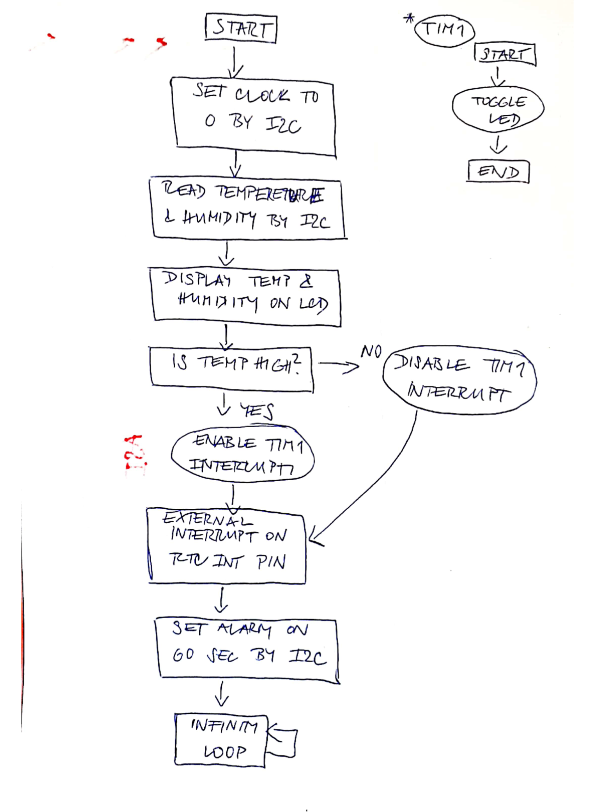 START
SET CLOCK TO
0 BY I2C
READ TEMPERETURE
& HUMIDITY BY I2C
DISPLAY TEMP &
HUMIDITY ON LCD
IS TEMP HIGH?
NO
DISABLE TIM1
INTERRUPT
YES
ENABLE TIM1
INTERRUPT
EXTERNAL
INTERRUPT ON
RTC INT PIN
SET ALARM ON
60 SEC BY I2C
INFINITY
LOOP
* TIM1
START
TOGGLE
LED
END